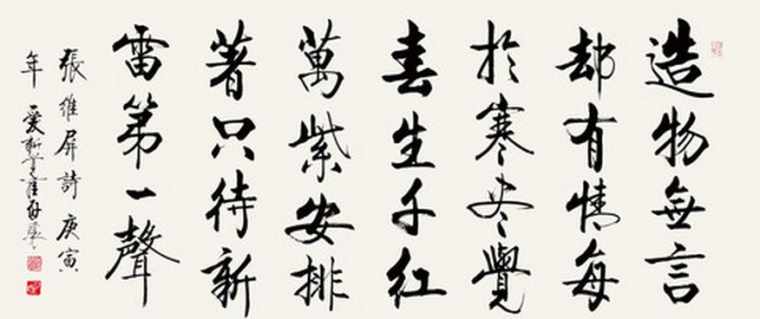 造物無言
却有情每
於寒尽覺
春生千紅
萬紫安排
著只待新
雷第一聲
張維屏詩庚寅
年 愛新覺羅